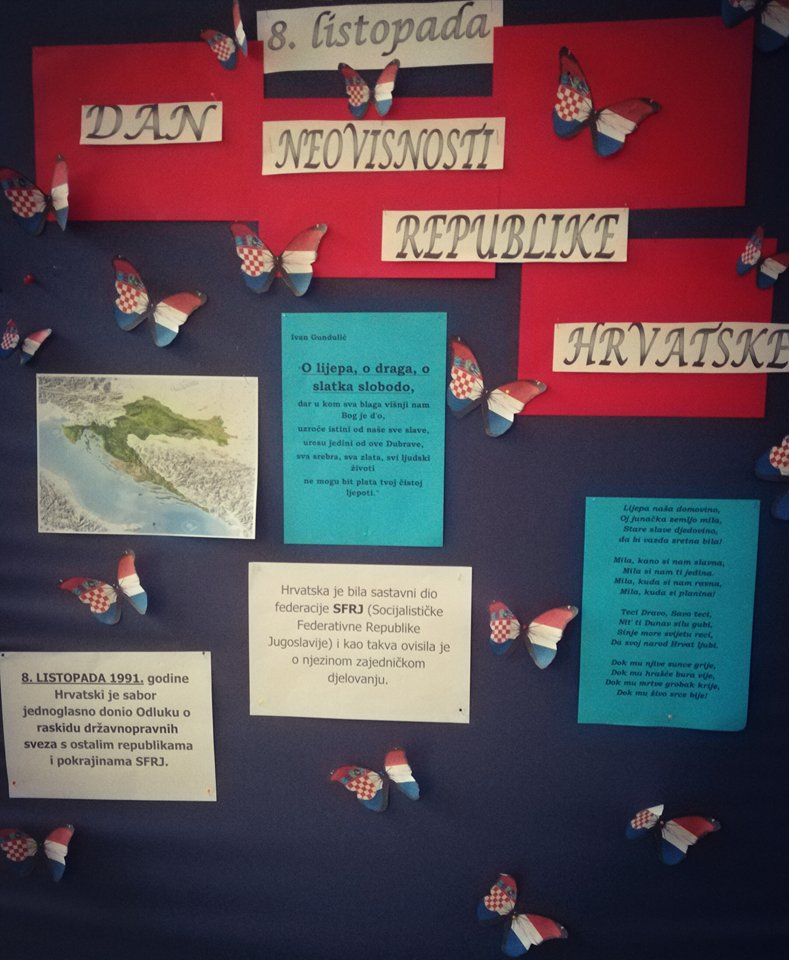 8. listopada
DAN
NEOVISNOSTI
REPUBLIKE
HRVATSKE
Ivan Gundulić
"O lijepa, o draga, o
slatka slobodo,
dar u kom sva blaga višnji nam
Bog je d'o,
uzroče istini od naše sve slave,
uresu jedini od ove Dubrave,
sva srebra, sva zlata, svi ljudski
životi
ne mogu bit plata tvoj čistoj
ljepoti."
Lijepa naša domovino,
Oj junačka zemljo mila,
Stare slave djedovino,
da bi vazda sretna bila!
Mila, kano si nam slavna,
Mila si nam ti jedina.
Mila, kuda si nam ravna,
Mila, kuda si planina!
Teci Dravo, Savo teci,
Nit' ti Dunav silu gubi,
Sinje more svijetu reci,
Da svoj narod Hrvat ljubi.
Dok mu njive sunce grije,
Dok mu hrašće bura vije,
Dok mu mrtve grobak krije,
Dok mu živo srce bije!
Hrvatska je bila sastavni dio
federacije SFRJ (Socijalističke
Federativne Republike
Jugoslavije) i kao takva ovisila je
o njezinom zajedničkom
djelovanju.
8. LISTOPADA 1991. godine
Hrvatski je sabor
jednoglasno donio Odluku o
raskidu državnopravnih
sveza s ostalim republikama
i pokrajinama SFRJ.